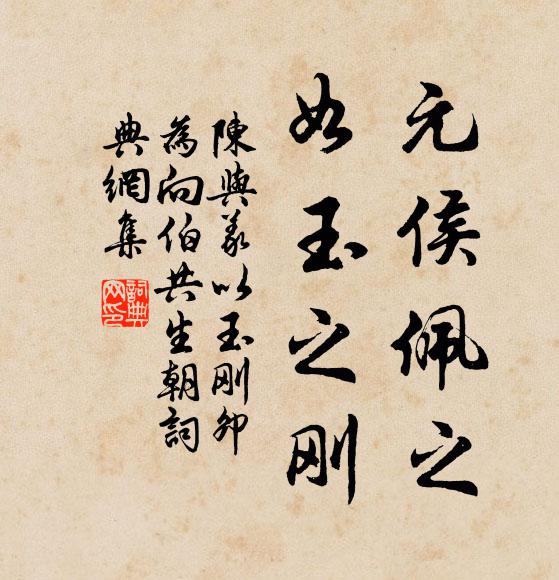 元侯佩之
如玉之刚
陳與義以玉刚卯
為向伯共生朝詞
典網集
詞典網印